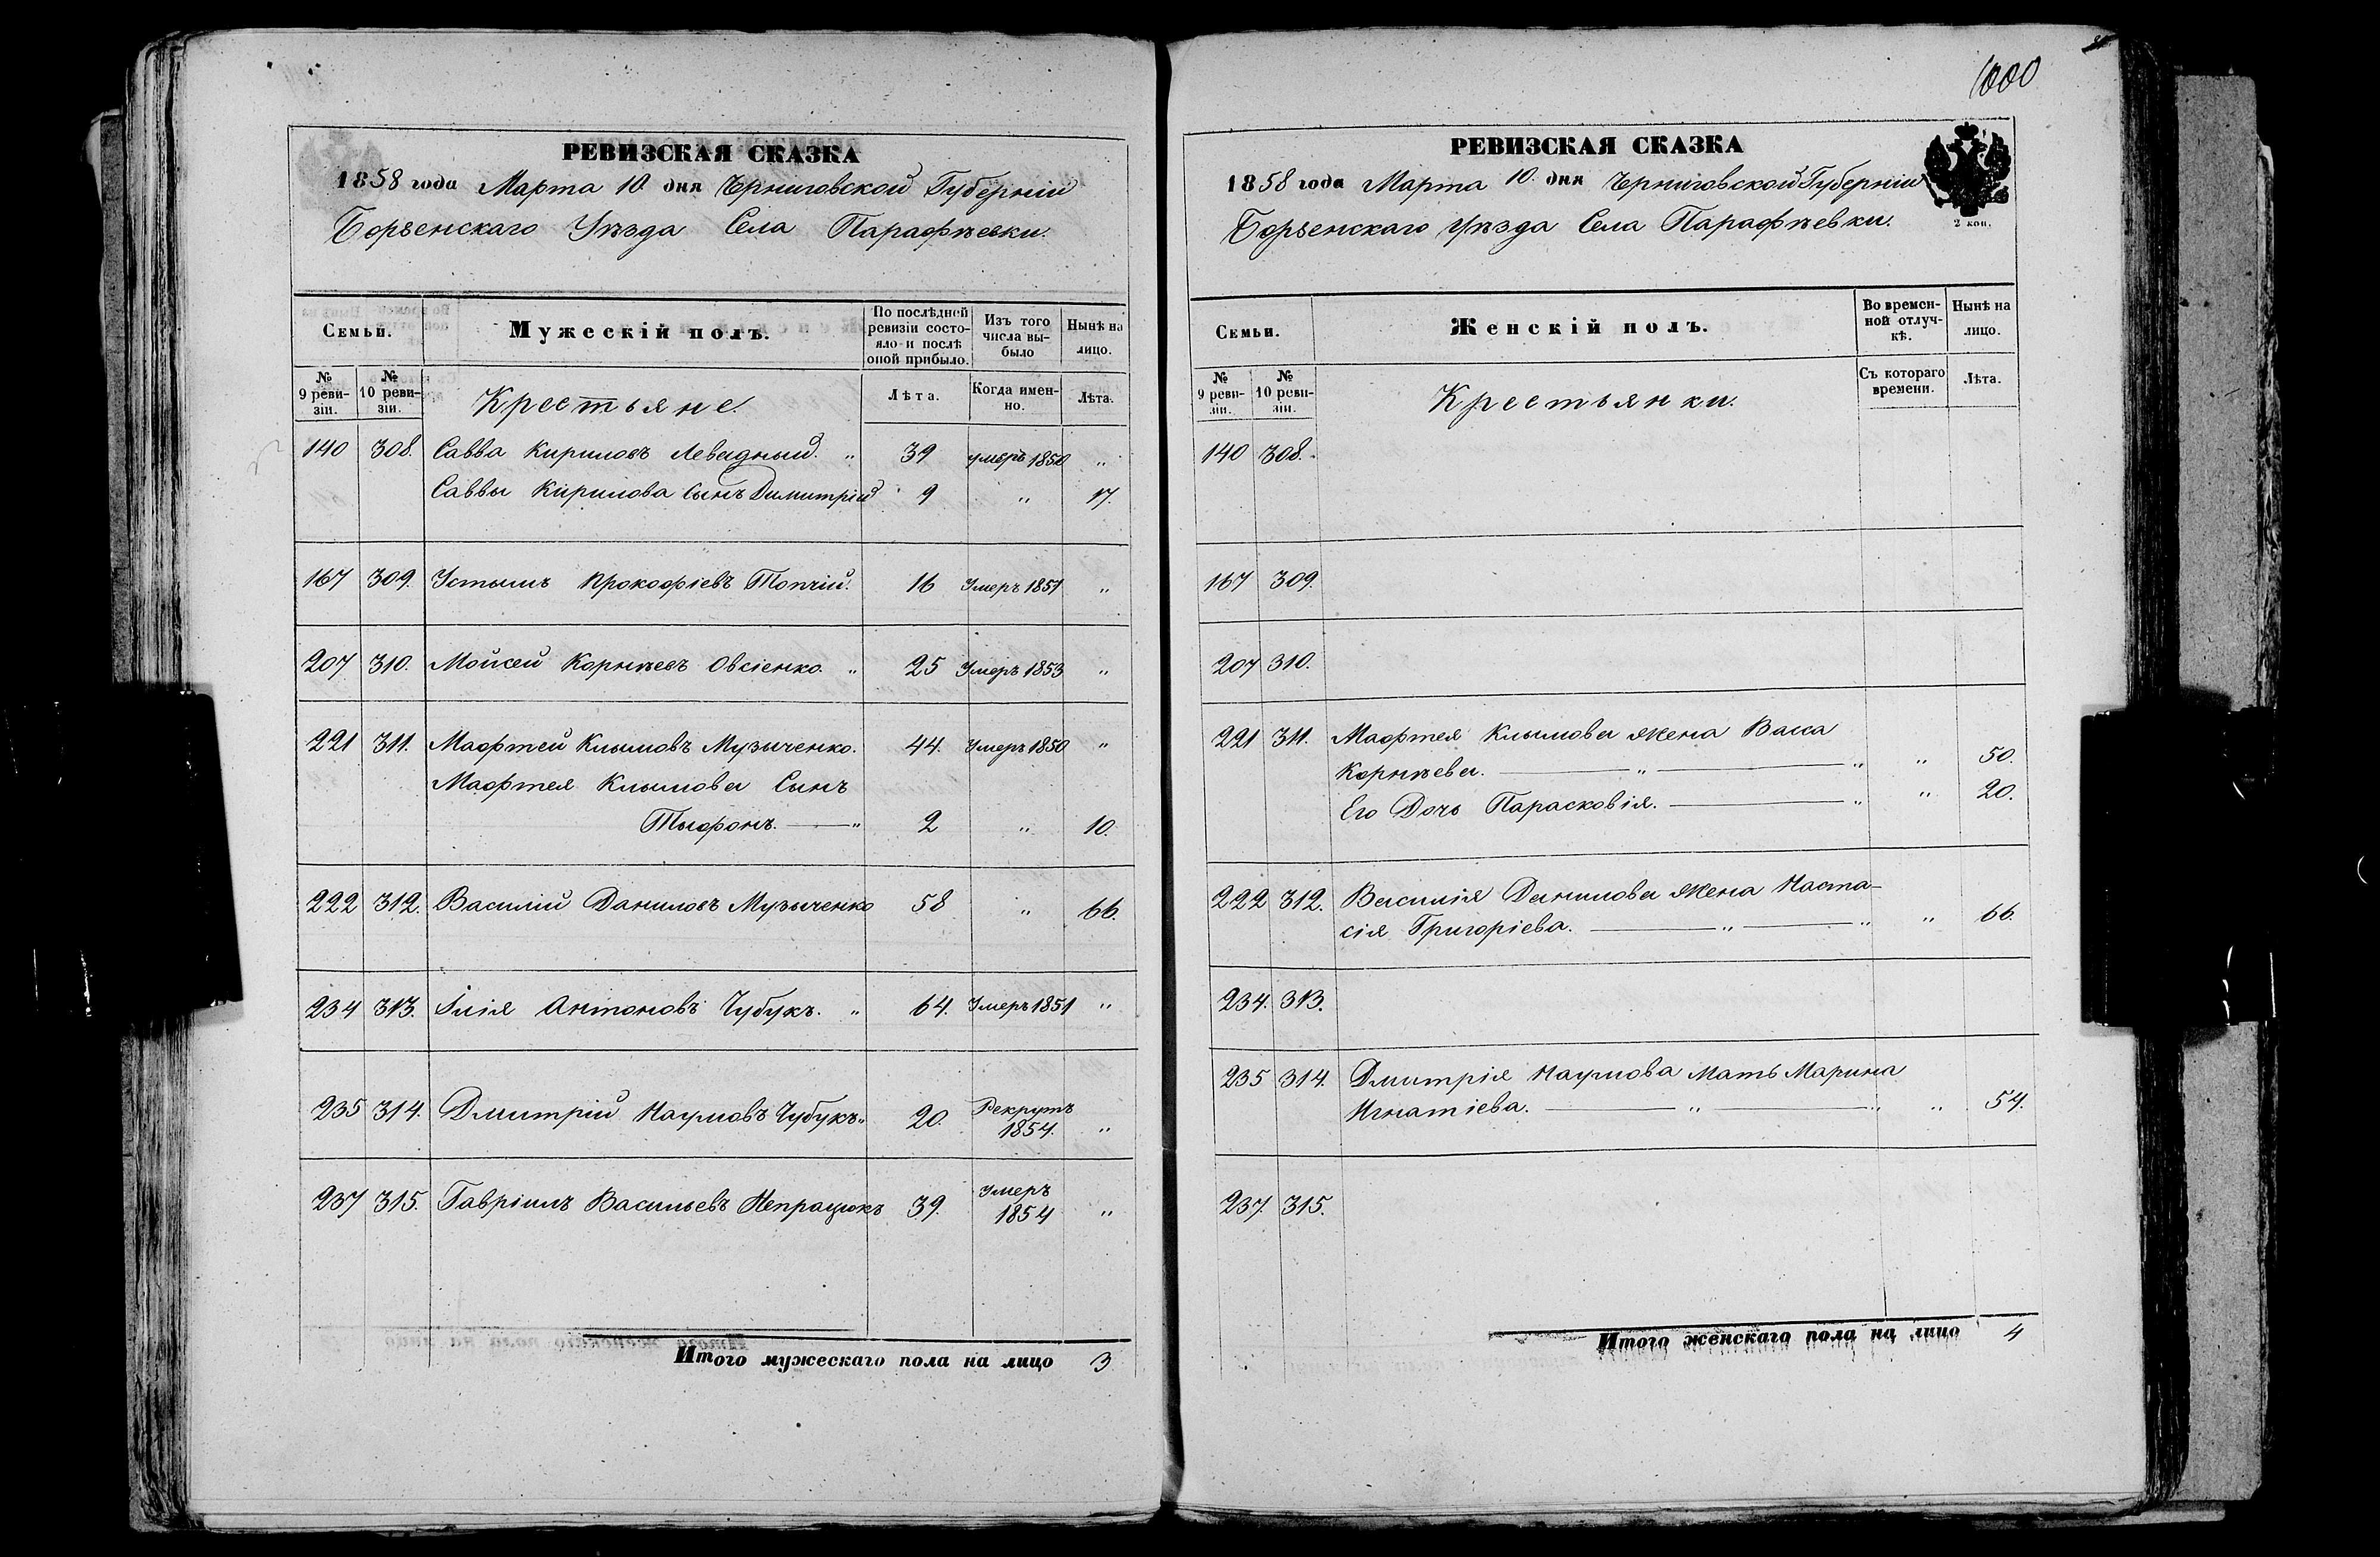 РЕВИЗСКАЯ СКАЗКА
1858 года Марта 10 дня Черниговской Губерніи
Борзенскаго Уѣзда Села Парафѣевки.
Семьи.
Мужескій полъ.
По послѣдней ревизіи состояло и послѣ оной прибыло.
Изъ того числа выбыло
Нынѣ на лицо.
№ 9 ревизіи.
№ 10 ревизіи.
Крестьяне.
Лѣта.
Когда именно.
Лѣта.
140 308. Савва Кириловъ Левадный. „ 39 умеръ 1850 „
Саввы Кирилова Сынъ Димитрій 9 „ 17.
167 309. Устымъ Прокофіевъ Топчій. 16 Умеръ 1851 „
207 310. Мойсей Корнѣевъ Овсіенко. „ 25 Умеръ 1853 „
221 311. Мафтей Клымовъ Музыченко. 44. Умеръ 1850 „
Мафтея Клымова Сынъ
Тыфонъ. — „ 2 „ 10.
222 312. Василій Даниловъ Музыченко 58 „ 66.
234 313. Илія Антоновъ Чубукъ. „ 64. Умеръ 1851 „
235 314. Дмитрій Наумовъ Чубукъ „ 20. Рекрутъ 1854. „
237 315. Гавріилъ Васильевъ Непрацюкъ 39. Умеръ 1854 „
Итого мужескаго пола на лицо 3
1000
РЕВИЗСКАЯ СКАЗКА
1858 года Марта 10 дня Черниговской Губерніи
Борзенскаго Уѣзда Села Парафѣевки.
2 коп.
Семьи.
Женскій полъ.
Во временной отлучкѣ.
Нынѣ на лицо.
№ 9 ревизіи.
№ 10 ревизіи.
Крестьянки.
Съ котораго времени.
Лѣта.
140 308.
167 309.
207 310.
221 311. Мафтея Клымова жена Васса
Корнѣева. — „ — „ „ 50.
Его Дочь Парасковія. — „ „ 20.
222 312. Василія Данилова жена Наста-
сія Григоріева. — „ — „ „ 66.
234. 313.
235 314. Дмитрія Наумова Мать Марина
Игнатіева. — „ — „ „ 54.
237. 315.
Итого женскаго пола на лицо 4